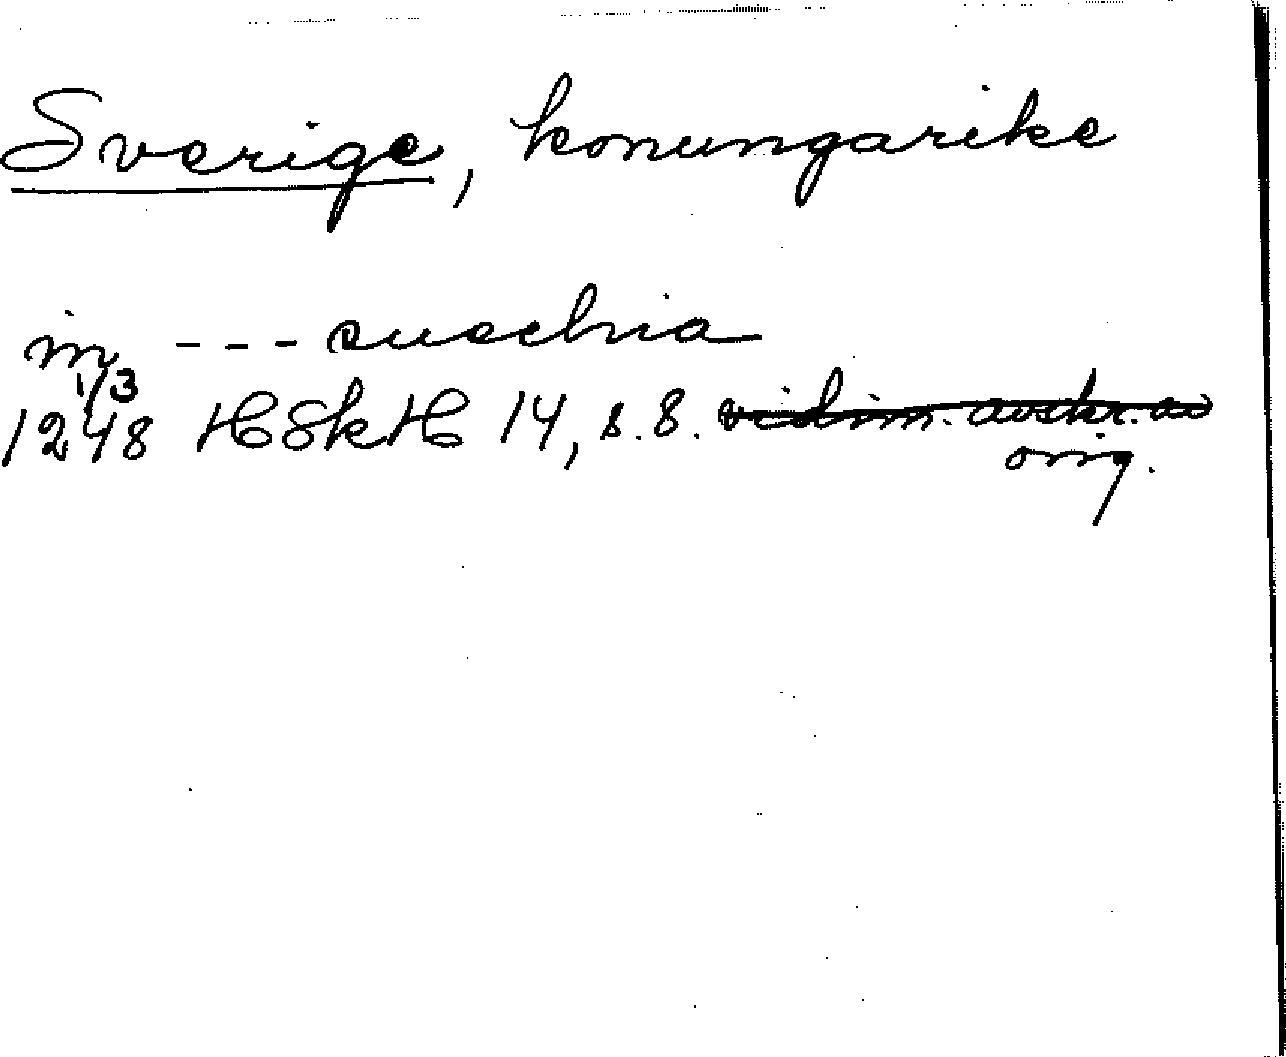 Sverige, konungarike
in --- suechia
1/3
1248 HSkH 14, s. 8. vidim. avskr. av
orig.